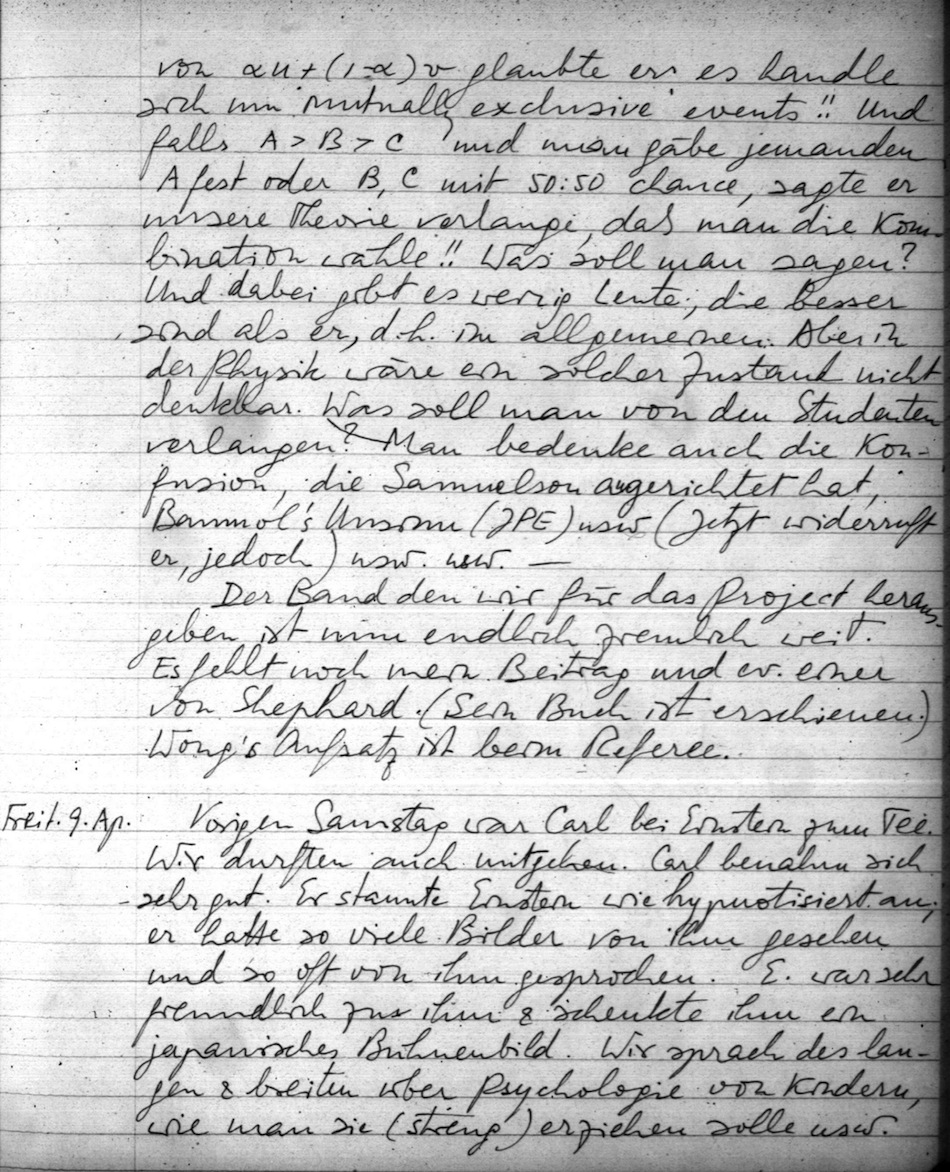 von αu+(1-α)v glaubte er es handle
sich um "mutually exclusive" events!! Und
falls A > B > C und man gäbe jemanden
A fest oder B, C mit 50:50 chance, sagte er
unsere Theorie verlange, daß man die Kom-
bination wähle!! Was soll man sagen?
Und dabei gibt es wenig Leute, die besser
sind als er, d.h. im allgemeinen. Aber in
der Physik wäre ein solcher Zustand nicht
denkbar. Was soll man von den Studenten
verlangen? Man bedenke auch die Kon-
fusion, die Samuelson angerichtet hat,
Baumol's Unsinn (JPE) usw (Jetzt widerruft
er, jedoch) usw. usw. —
Der Band den wir für das Project heraus-
geben ist nun endlich ziemlich weit.
Es fehlt noch mein Beitrag und ev. einer
von Shephard. (Sein Buch ist erschienen.)
Wong's Aufsatz ist beim Referee.
Freit. 9. Ap. Vorigen Samstag war Carl bei Einstein zum Tee.
Wir durften auch mitgehen. Carl benahm sich
sehr gut. Er staunte Einstein wie hypnotisiert an;
er hatte so viele Bilder von ihm gesehen
und so oft von ihm gesprochen. E. war sehr
freundlich zu ihm & schenkte ihm ein
japanisches Bühnenbild. Wir sprach des lan-
gen & breiten über Psychologie von Kindern,
wie man sie (streng) erziehen solle usw.